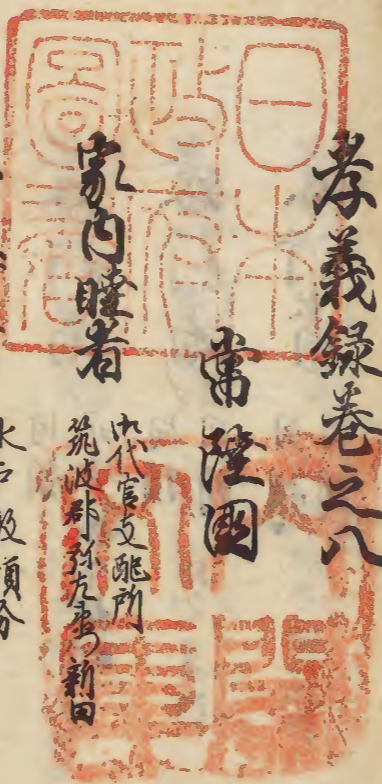 孝義録巻之八
常陸國
家内睦者
御代官支配所
筑波郡弥左衛門新田
水戸殿領分
日本
政府
圖書